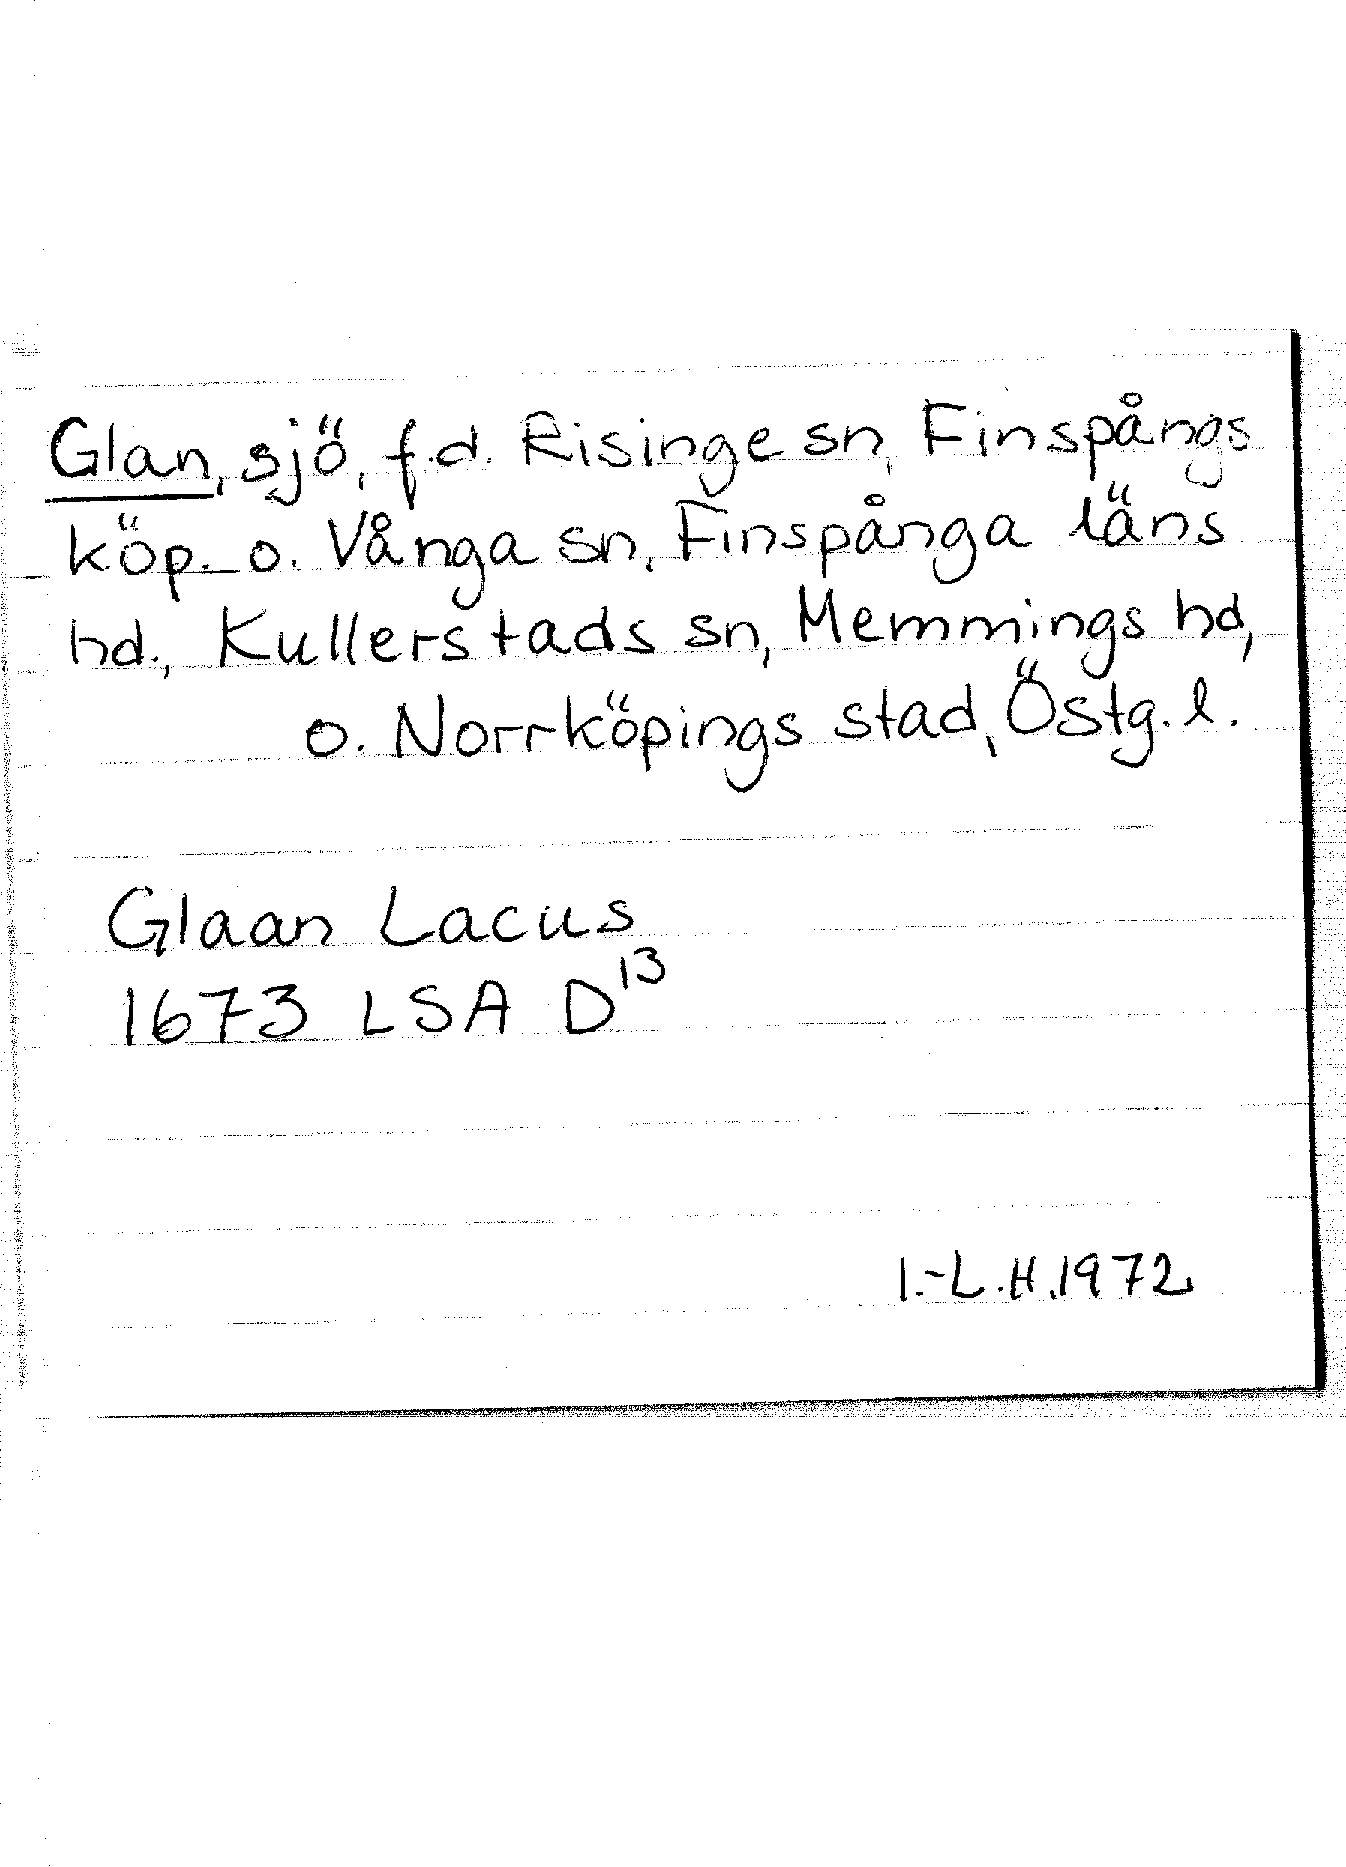 Glan, sjö, f.d. Risinge sn, Finspångs
köp. o. Vånga sn, Finspånga läns
hd., Kullerstads sn, Memmings hd,
o. Norrköpings stad, Östg. l.
Glaan Lacus
1673 LSA D¹³
I.-L.H.1972